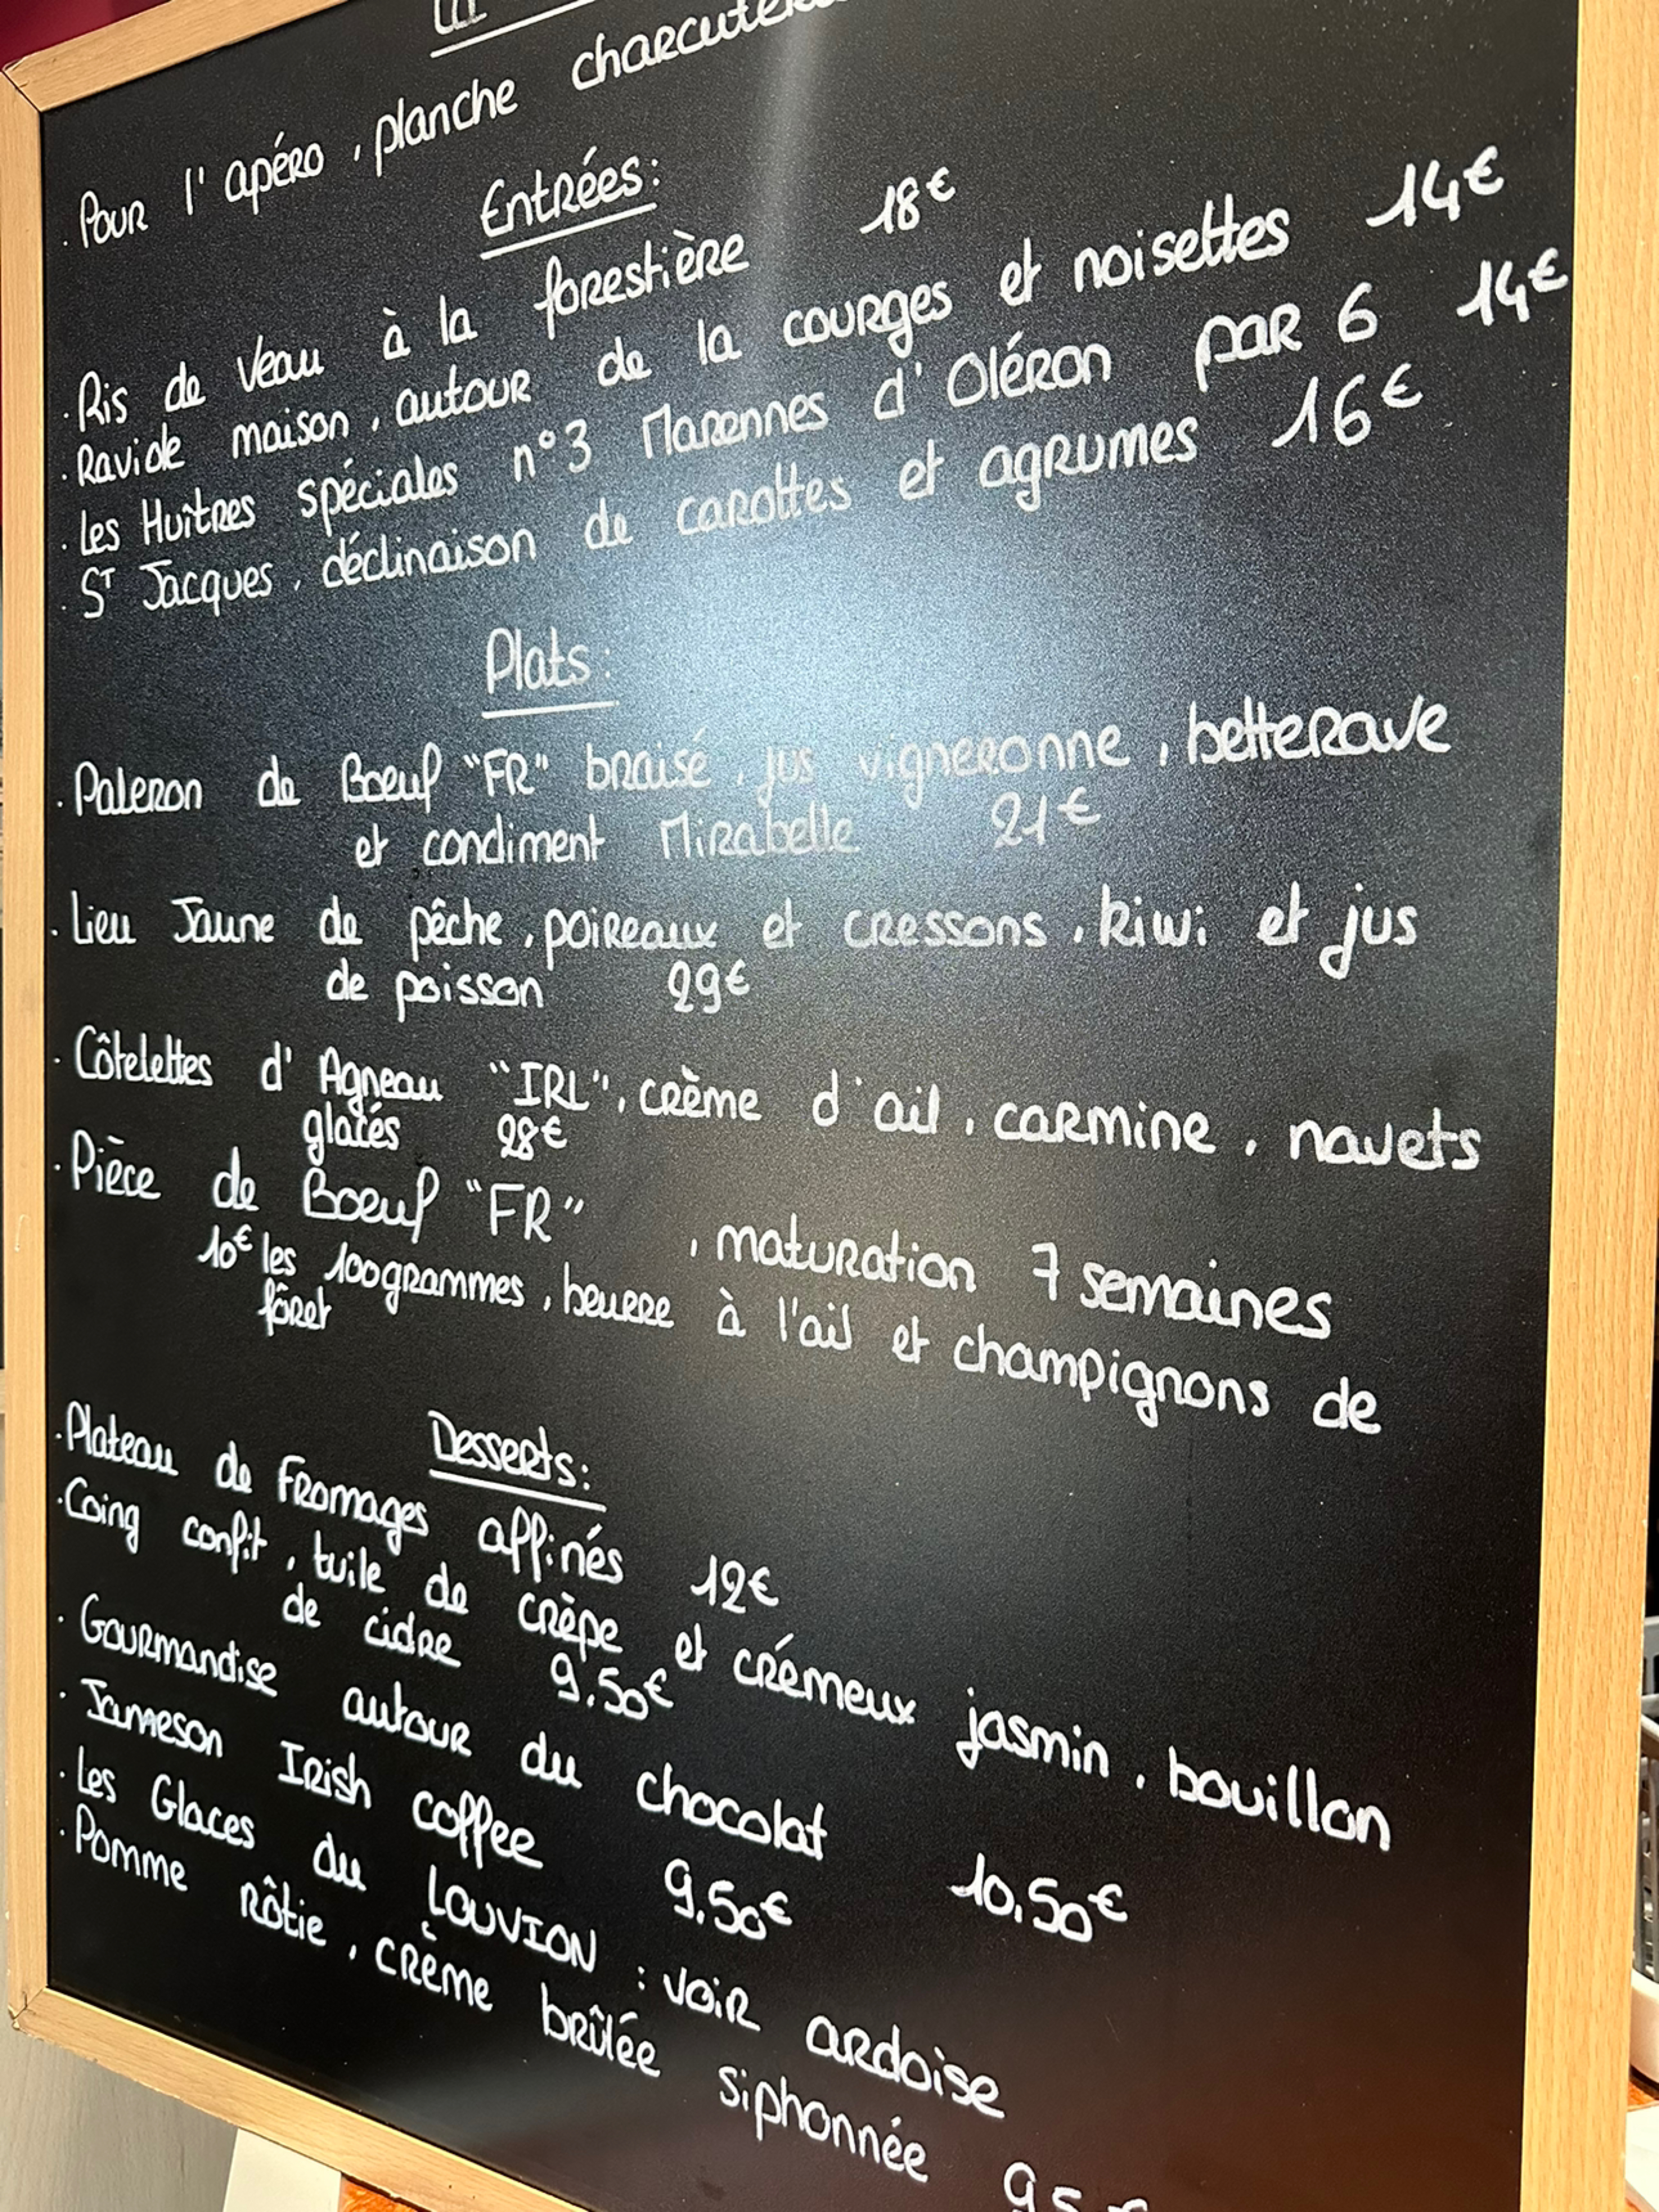 . Pour l'apéro, planche
Entrées:
. Ris de Veau à la forestière 18€
. Raviole maison, autour de la courges et noisettes 14€
. Les Huîtres spéciales n°3 Marennes d'Oléron par 6 14€
. ST Jacques, déclinaison de carottes et agrumes 16€
Plats:
. Paleron de Boeuf "FR" braisé, jus vigneronne, betterave
et condiment Mirabelle 21€
. Lieu Jaune de pêche, poireaux et cressons, kiwi et jus
de poisson 29€
. Côtelettes d'Agneau "IRL", crème d'ail, carmine, navets
glacés 28€
. Pièce de Boeuf "FR" , maturation 7 semaines
10€ les 100grammes, beurre à l'ail et champignons de
fôret
Desserts:
. Plateau de Fromages affinés 12€
. Coing confit, tuile de crèpe et crémeux jasmin, bouillon
de cidre 9.50€
. Gourmandise autour du chocolat 10,50€
. Jameson Irish coffee 9.50€
. Les Glaces du LOUVION : voir ardoise
. Pomme rôtie, crème brûlée siphonnée